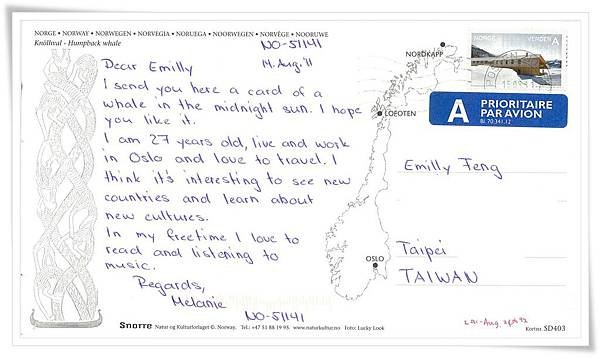 NORGE • NORWAY • NORWEGEN • NORVEGIA • NORUEGA • NOORWEGEN • NORVÈGE • NOORUWE
Knölhval - Humpback whale
NO-51141
14. Aug. '11
Dear Emilly
I send you here a card of a
whale in the midnight sun. I hope
you like it.
I am 27 years old, live and work
in Oslo and love to travel. I
think it's interesting to see new
countries and learn about
new cultures.
In my freetime I love to
read and listening to
music.
Regards,
Melanie
NO-51141
NORDKAPP
LOFOTEN
OSLO
NORGE
VERDEN A
A PRIORITAIRE
PAR AVION
BL 70.341.12
Emilly Feng
Taipei
TAIWAN
Snorre Natur og Kulturforlaget ©. Norway. Tel.: +47 51 88 19 95 www.naturkultur.no Foto: Lucky Look
Kortnr. SD403